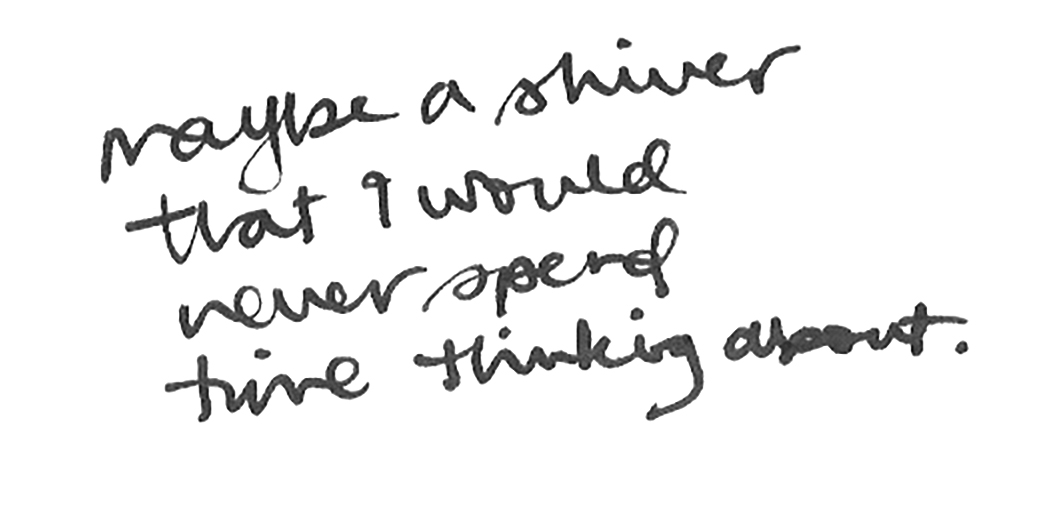 maybe a shiver
that I would
never spend
time thinking about.